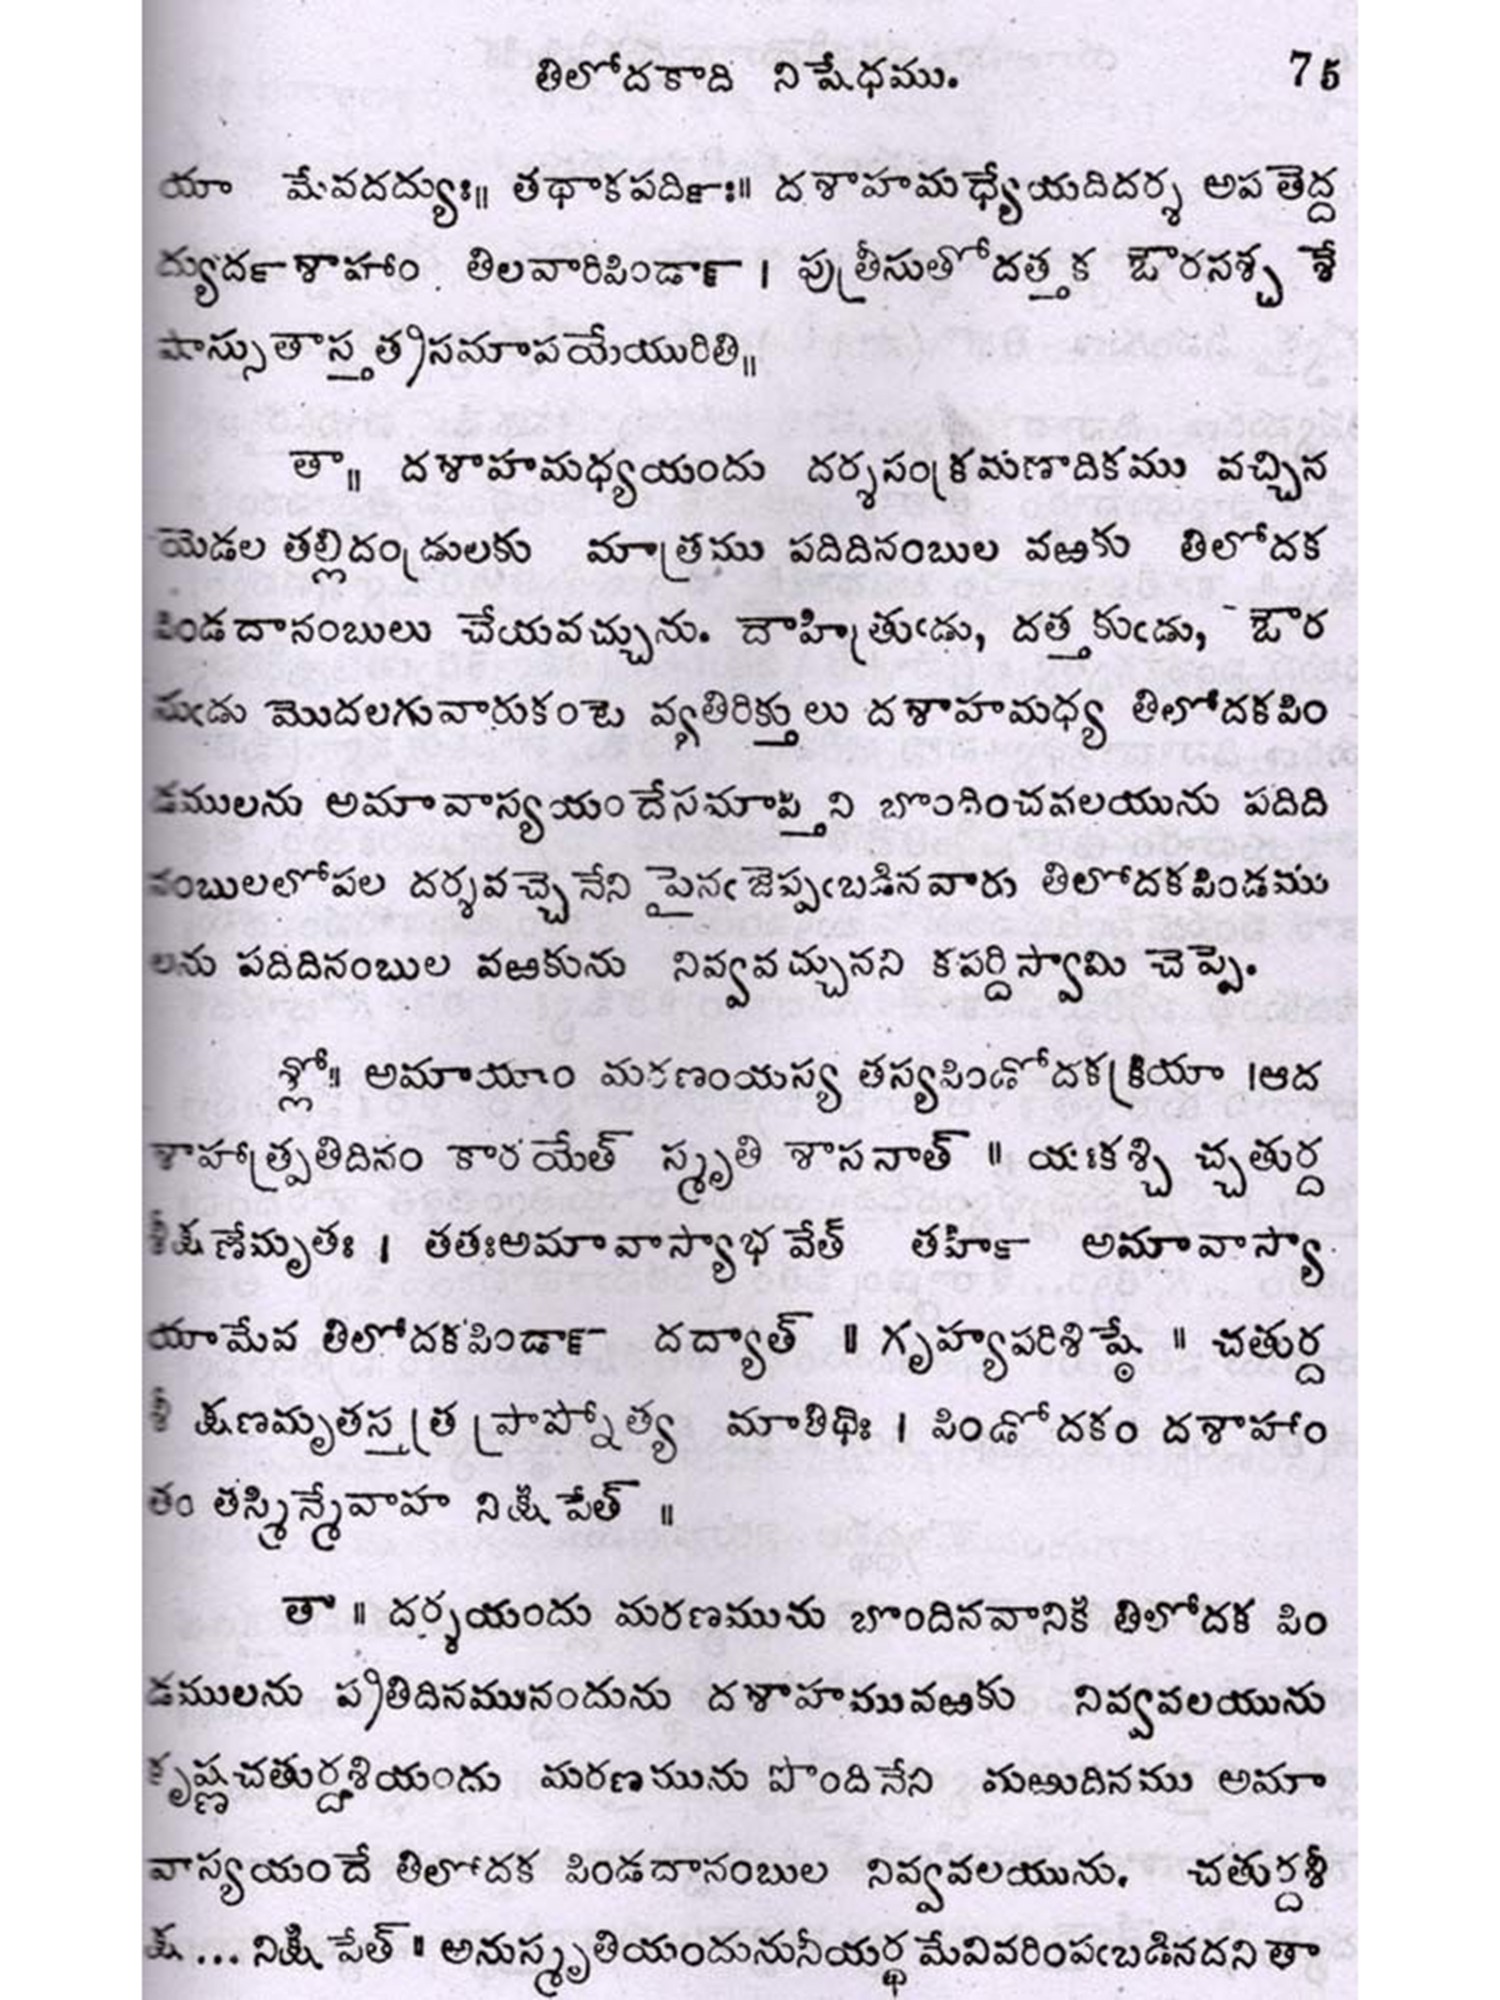 తిలోదకాది నిషేధము. 75
యా మేవదద్యుః॥ తథాకపర్దిః॥ దశాహమధ్యేయదిదర్శ అపతెద్ద
ద్యుర్దశాహాం తిలవారిపిండాన్ । పుత్రీసుతోదత్తక ఔరసశ్చ శే
షాస్సుతాస్తత్రసమాపయేయురితి॥
తా॥ దశాహమధ్యయందు దర్శసంక్రమణాదికము వచ్చిన
యెడల తల్లిదండ్రులకు మాత్రము పదిదినంబుల వఱకు తిలోదక
పిండదానంబులు చేయవచ్చును. దౌహిత్రుఁడు, దత్తకుఁడు, ఔర
సుఁడు మొదలగువారుకంటె వ్యతిరిక్తులు దశాహమధ్య తిలోదకపిం
డములను అమావాస్యయందేసమాప్తిని బొందించవలయును పదిది
నంబులలోపల దర్శవచ్చెనేని పైనఁజెప్పఁబడినవారు తిలోదకపిండము
లను పదిదినంబుల వఱకును నివ్వవచ్చునని కపర్దిస్వామి చెప్పె.
శ్లో॥ అమాయాం మరణంయస్య తస్యపిండోదకక్రియా ।ఆద
శాహాత్ప్రతిదినం కారయేత్ స్మృతి శాసనాత్ ॥ యఃకశ్చి చ్చతుర్ద
శీక్షణేమృతః । తతఃఅమావాస్యాభవేత్ తర్హి అమావాస్యా
యామేవ తిలోదకపిండాన్ దద్యాత్ ॥ గృహ్యపరిశిష్టే ॥ చతుర్ద
శీ క్షణమృతస్తత్ర ప్రాప్నోత్య మాతిథిః । పిండోదకం దశాహాం
తం తస్మిన్నేవాహ నిక్షిపేత్ ॥
తా ॥ దర్శయందు మరణమును బొందినవానికి తిలోదక పిం
డములను ప్రతిదినమునందును దశాహమువఱకు నివ్వవలయును
కృష్ణచతుర్దశియందు మరణమును పొందినేని మఱుదినము అమా
వాస్యయందే తిలోదక పిండదానంబుల నివ్వవలయును. చతుర్దశీ
క్ష ... నిక్షిపేత్ ॥ అనుస్మృతియందునునీయర్థమేవివరింపఁబడినదని తా